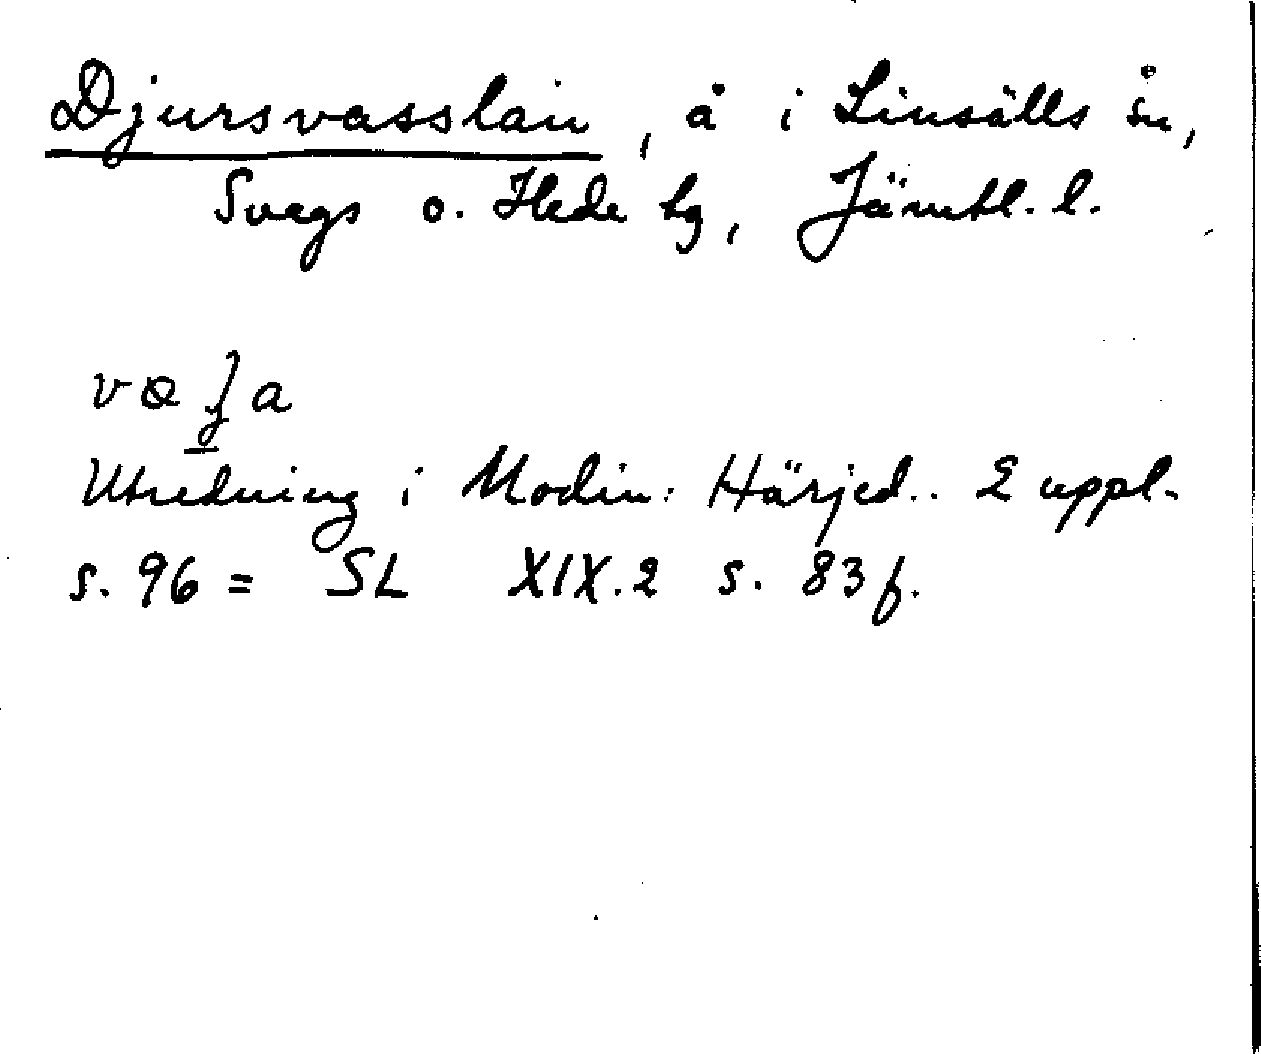 Djursvasslan, å i Linsälls sn,
Svegs o. Hede tg, Jämtl. l.
Utredning i Modin: Härjed.. 2 uppl.
s. 96 = SL XIX.2 s. 83 f.